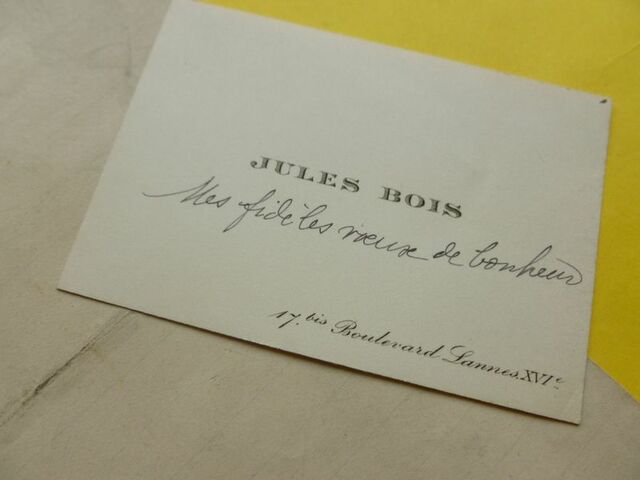 JULES BOIS
Mes fidèles vœux de bonheur
17.bis Boulevard Lannes.XVIe